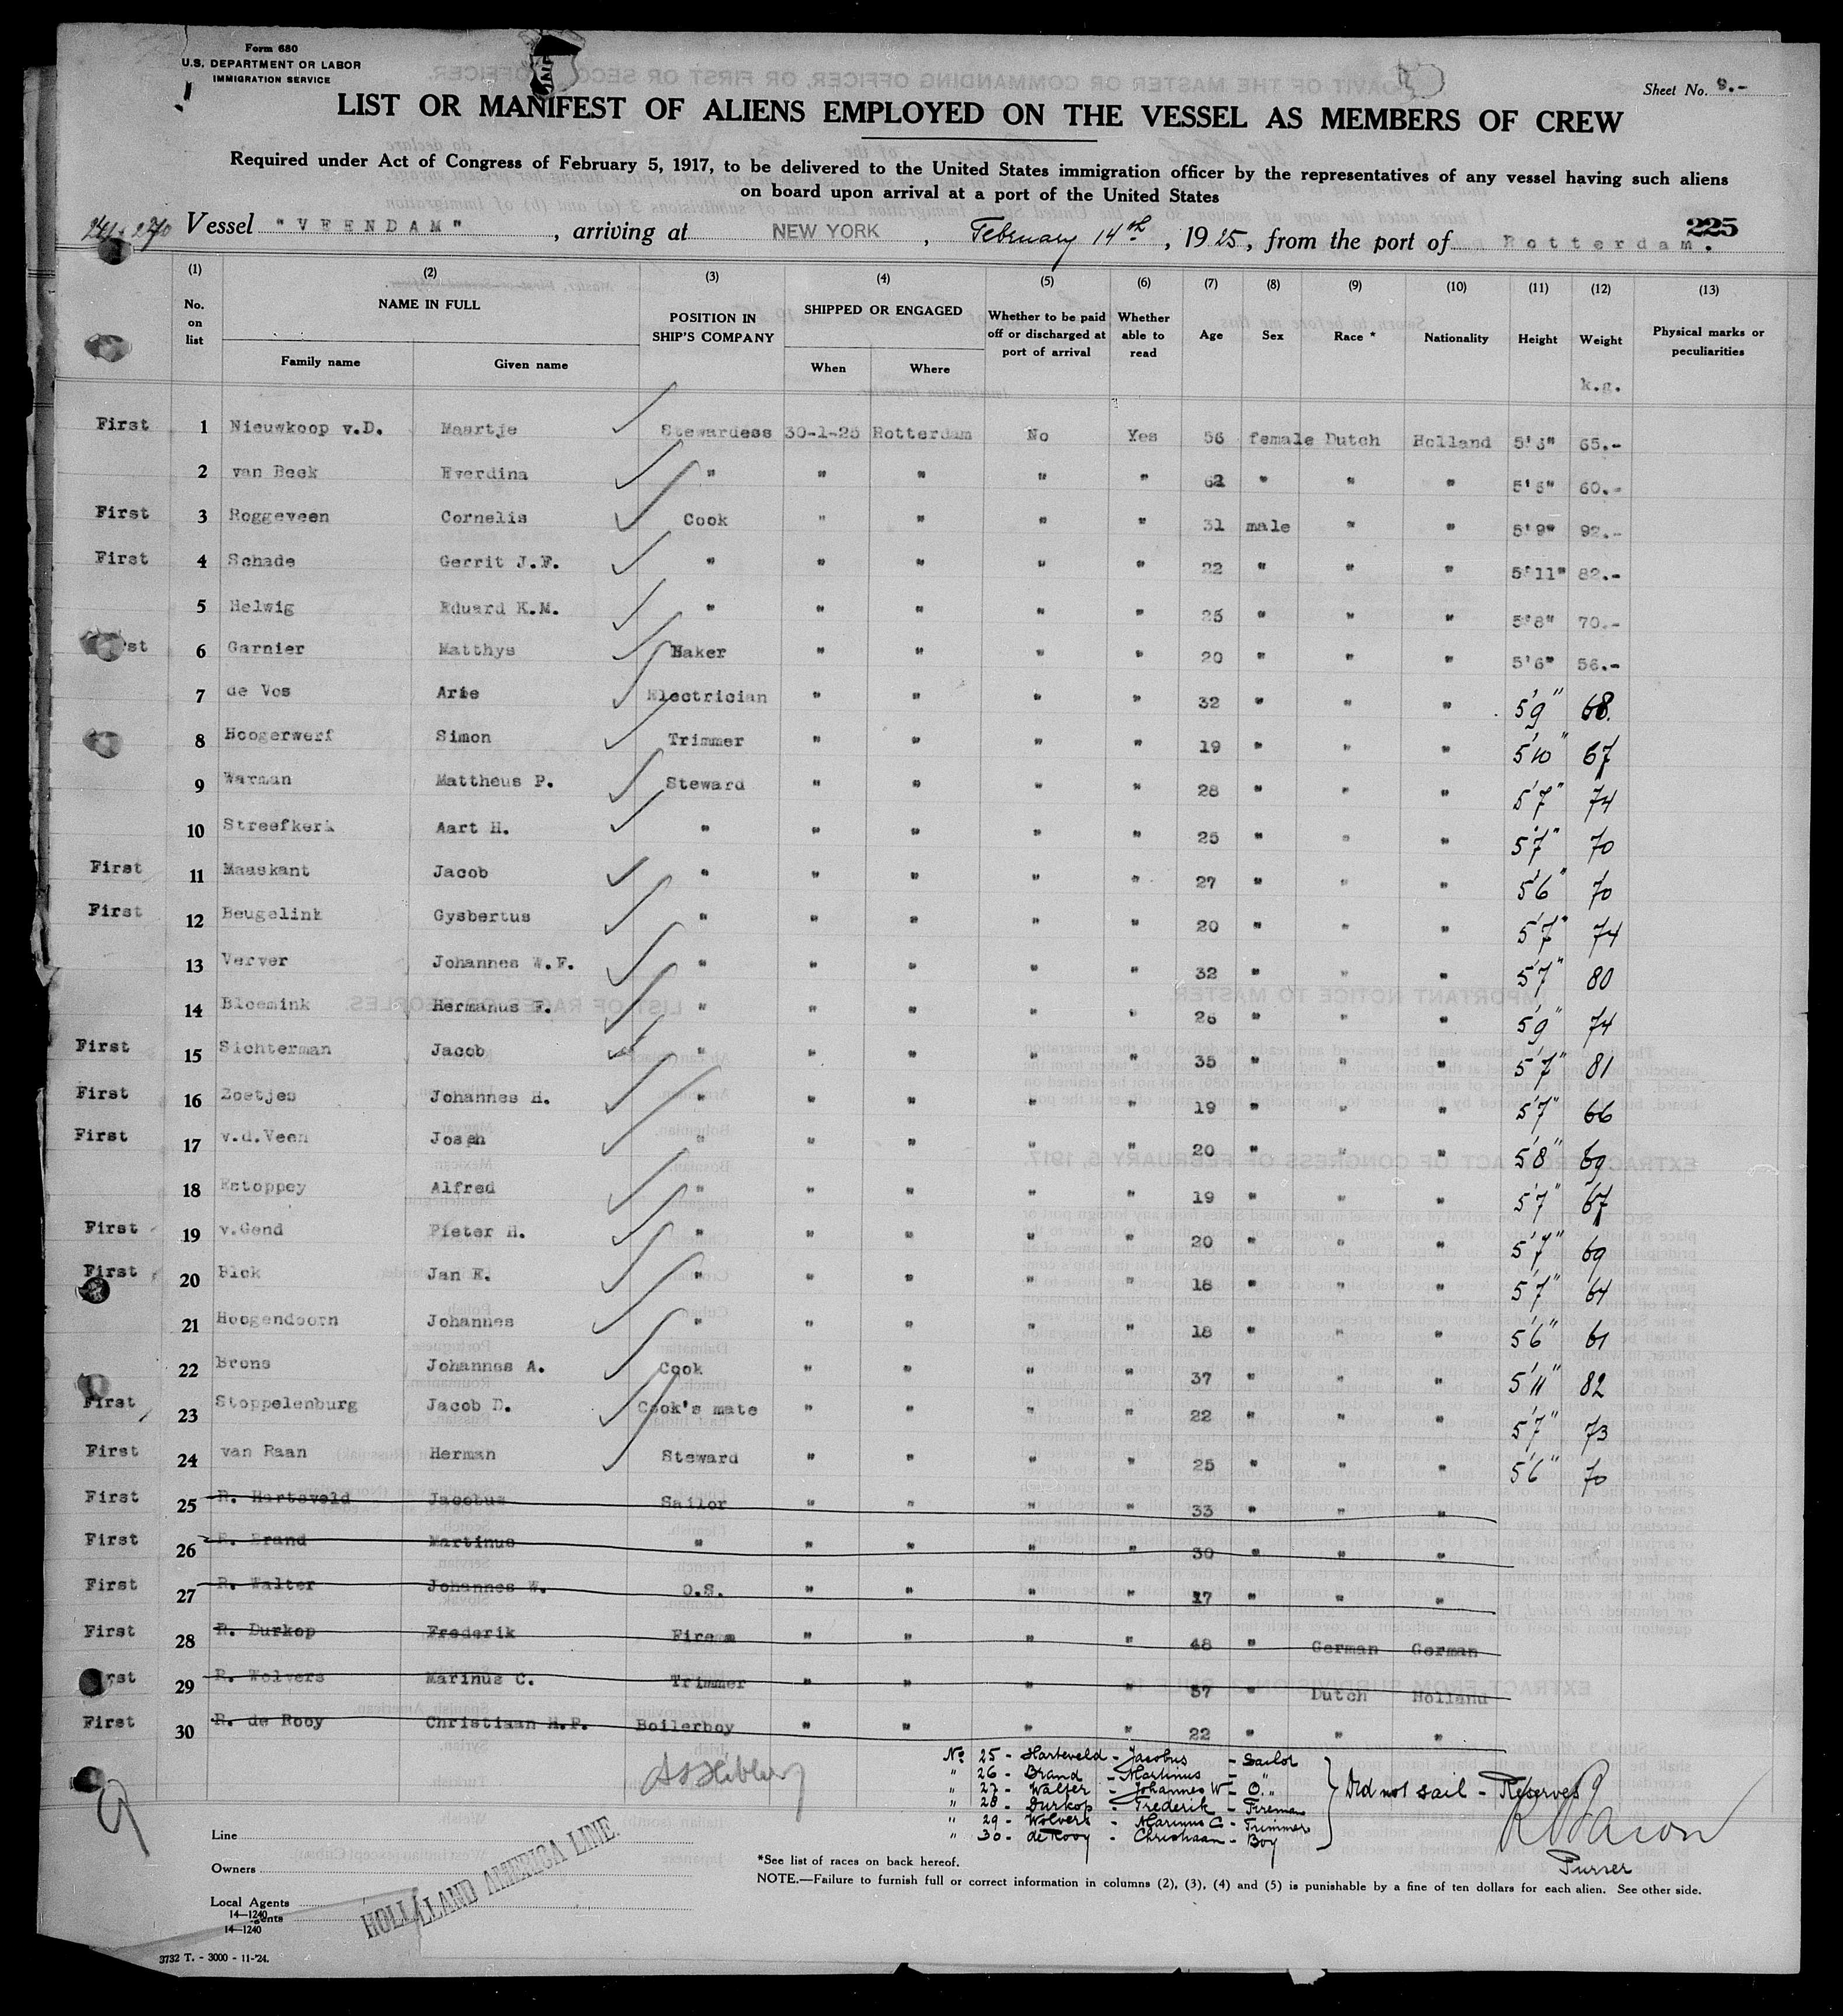 Form 680
U.S. DEPARTMENT OR LABOR
IMMIGRATION SERVICE
Sheet No. 9.-
LIST OR MANIFEST OF ALIENS EMPLOYED ON THE VESSEL AS MEMBERS OF CREW
Required under Act of Congress of February 5, 1917, to be delivered to the United States immigration officer by the representatives of any vessel having such aliens
on board upon arrival at a port of the United States
225
Vessel "VEENDAM", arriving at NEW YORK, February 14th, 1925, from the port of Rotterdam.
(1) (2) (3) (4) (5) (6) (7) (8) (9) (10) (11) (12) (13)
No. on list NAME IN FULL Family name Given name POSITION IN SHIP'S COMPANY SHIPPED OR ENGAGED When Where Whether to be paid off or discharged at port of arrival Whether able to read Age Sex Race * Nationality Height Weight k.g. Physical marks or peculiarities
First 1 Nieuwkoop v.D. Maartje Stewardess 30-1-25 Rotterdam No Yes 56 female Dutch Holland 5'6" 65.-
2 van Beek Everdina " " " " " 62 " " " 5'6" 60.-
First 3 Roggeveen Cornelis Cook " " " " 31 male " " 5'9" 92.-
First 4 Schade Gerrit J.F. " " " " " 22 " " " 5'11" 82.-
5 Helwig Eduard K.M. " " " " " 25 " " " 5'8" 70.-
First 6 Garnier Matthys Baker " " " " 20 " " " 5'6" 56.-
7 de Vos Arie Electrician " " " " 32 " " " 5'9" 68.
8 Hoogerwerf Simon Trimmer " " " " 19 " " " 5'10" 67
9 Warman Mattheus P. Steward " " " " 28 " " " 5'7" 74
10 Streefkerk Aart H. " " " " " 25 " " " 5'7" 70
First 11 Maaskant Jacob " " " " " 27 " " " 5'6" 70
First 12 Beugelink Gysbertus " " " " " 20 " " " 5'7" 74
13 Verver Johannes W.F. " " " " " 32 " " " 5'7" 80
14 Bloemink Hermanus F. " " " " " 26 " " " 5'9" 74
First 15 Sichterman Jacob " " " " " 35 " " " 5'7" 81
First 16 Zoetjes Johannes H. " " " " " 19 " " " 5'7" 66
First 17 v.d.Veen Joseph " " " " " 20 " " " 5'8" 69
18 Estoppey Alfred " " " " " 19 " " " 5'7" 67
First 19 v.Gend Pieter H. " " " " " 20 " " " 5'7" 69
First 20 Blok Jan E. " " " " " 18 " " " 5'7" 64
21 Hoogendoorn Johannes " " " " " 18 " " " 5'6" 61
22 Brons Johannes A. Cook " " " " 37 " " " 5'11" 82
First 23 Stoppelenburg Jacob D. Cook's mate " " " " 22 " " " 5'7" 73
First 24 van Raan Herman Steward " " " " 25 " " " 5'6" 70
First 25 R. Harteveld Jacobus Sailor " " " " 33 " " "
First 26 R. Brand Martinus " " " " " 30 " " "
First 27 R. Walter Johannes W. O.S. " " " " 37 " " "
First 28 R. Durkop Frederik Firema " " " " 48 " German German
First 29 R. Wolvers Marinus C. Trimmer " " " " 37 " Dutch Holland
First 30 R. de Rooy Christiaan H.P. Boilerboy " " " " 22 " " "
No 25 - Harteveld - Jacobus - Sailor
" 26 - Brand - Martinus - "
" 27 - Walter - Johannes W - O. "
" 28 - Durkop - Frederik - Fireman
" 29 - Wolvers - Marinus C - Trimmer
" 30 - de Rooy - Christiaan - Boy
Did not sail - Reserves
Purser
Line
Owners
Local Agents
HOLLAND AMERICA LINE.
14—1240
14—1240
*See list of races on back hereof.
NOTE.—Failure to furnish full or correct information in columns (2), (3), (4) and (5) is punishable by a fine of ten dollars for each alien. See other side.
3732 T. - 3000 - 11-'24.